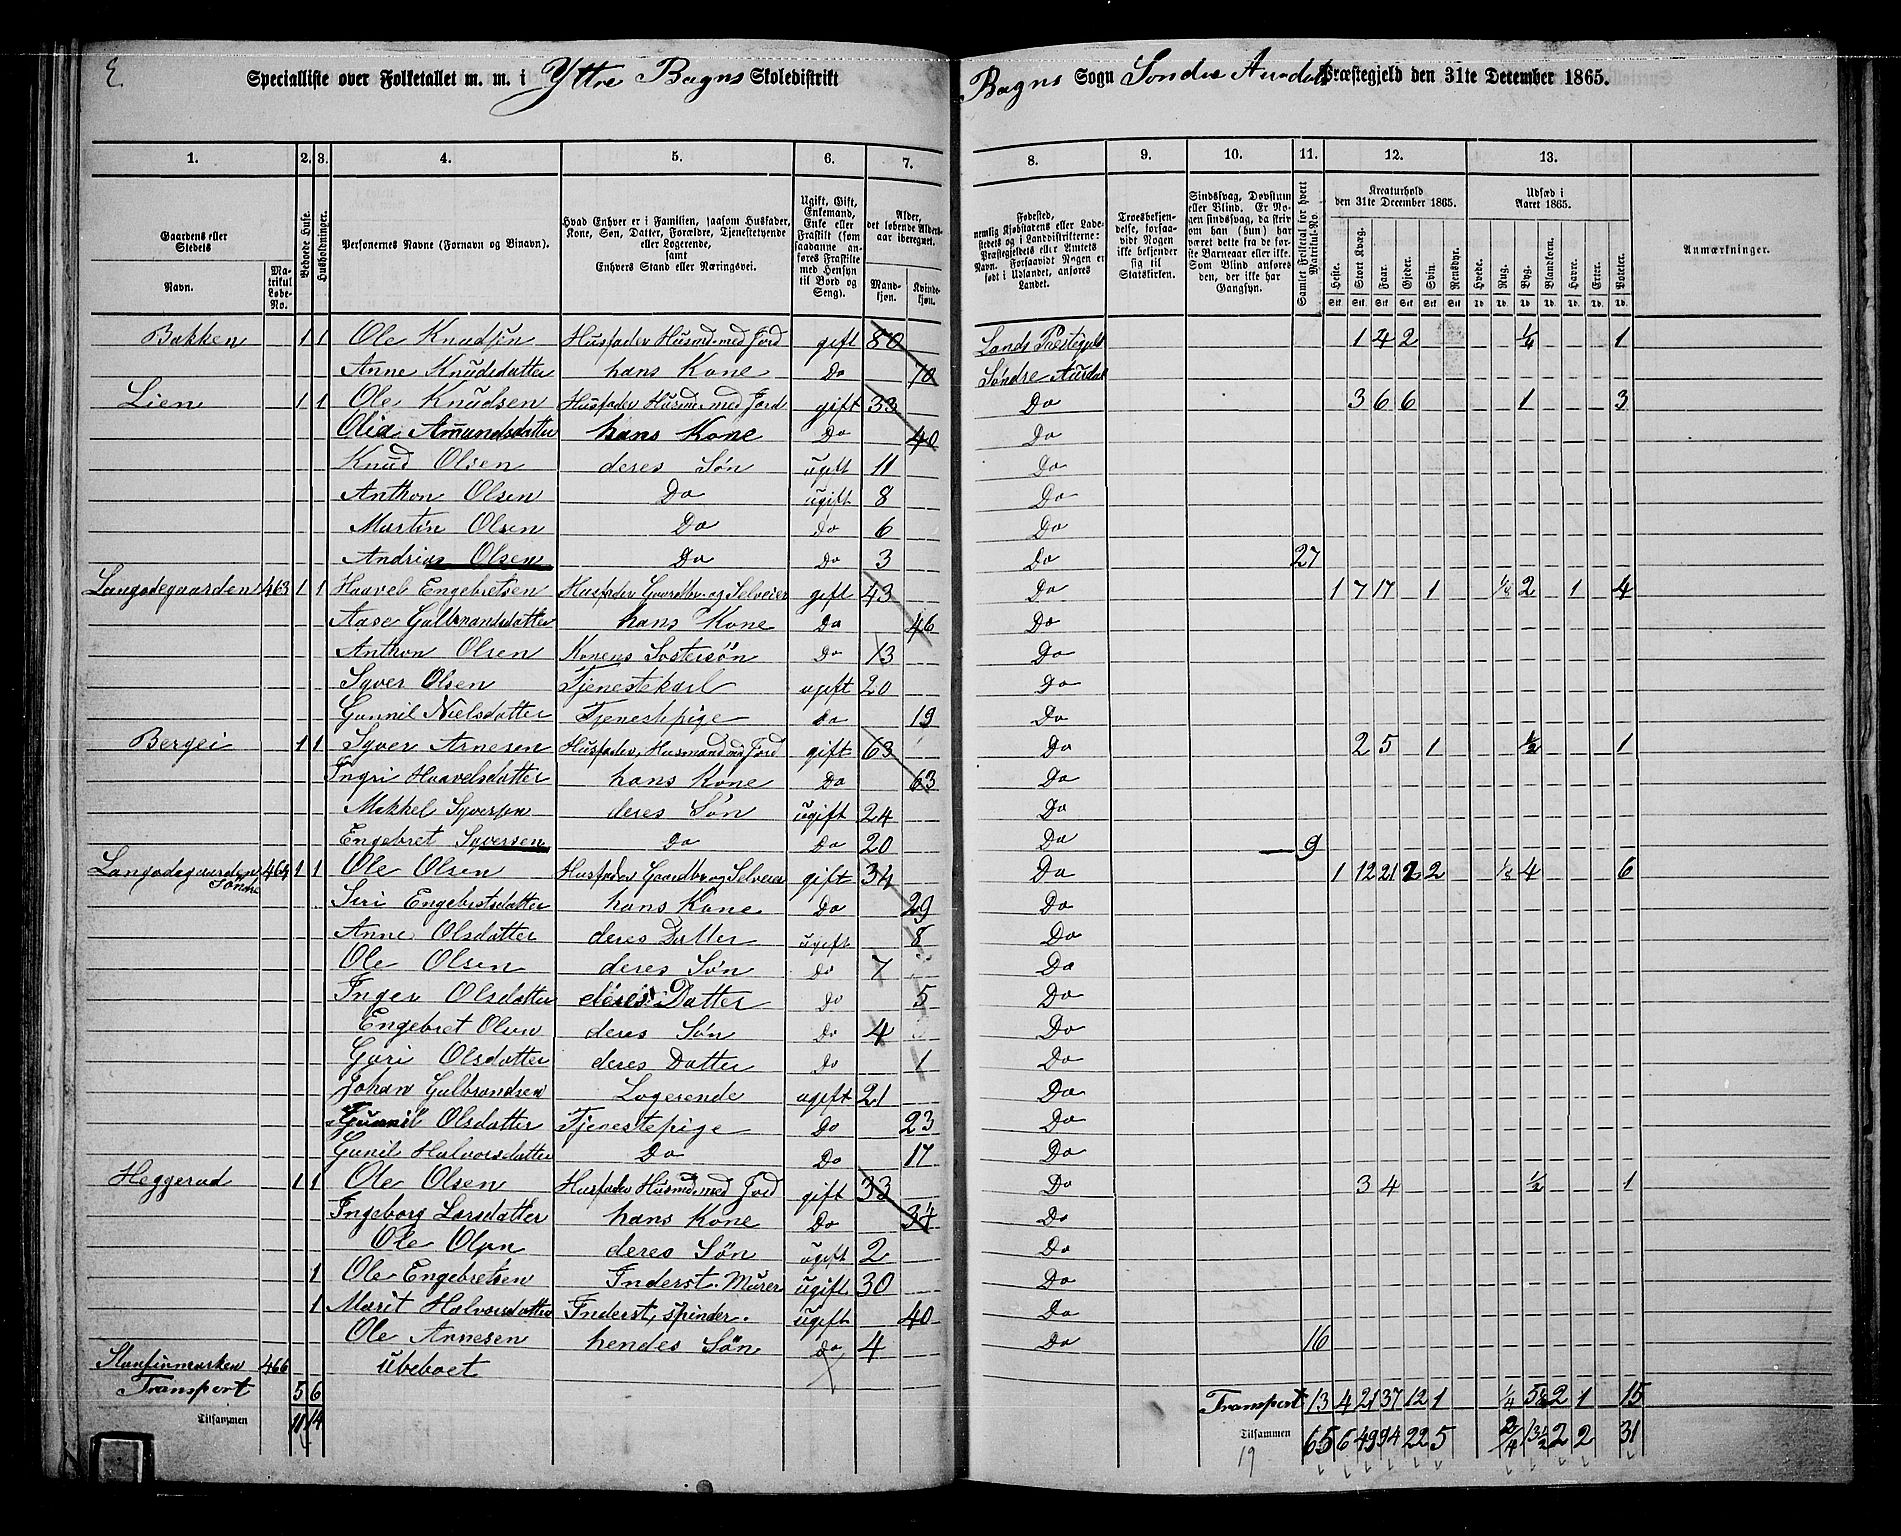 E.
Specialliste over Folketallet m. m. i Yttre Bagns Skoledistrikt Bagns Sogn Søndre Aurdals Præstegjeld den 31te December 1865.
1. 2. 3. 4. 5. 6. 7. 8. 9. 10. 11. 12. 13.
Gaardens eller Stedets
Navn.
Matrikul Løbe-No.
Beboede Huse.
Husholdninger.
Personernes Navne (Fornavn og Binavn).
Hvad Enhver er i Familien, saasom Husfader, Kone, Søn, Datter, Forældre, Tjenestetyende eller Logerende, samt Enhvers Stand eller Næringsvei.
Ugift, Gift, Enkemand, Enke eller Fraskilt (som saadanne anføres Fraskilte med Hensyn til Bord og Seng).
Alder, det løbende Aldersaar iberegnet.
Mandkjøn.
Kvindekjøn.
Fødested, nemlig Kjøbstadens eller Ladestedets og i Landdistrikterne: Præstegjeldets eller Amtets Navn. Forsaavidt Nogen er født i Udlandet, anføres Landet.
Troesbekjendelse, forsaavidt Nogen ikke bekjender sig til Statskirken.
Sindssvag, Døvstum eller Blind. Er Nogen sindssvag, da skrives om han (hun) har været dette fra de første Barneaar eller ikke. Som Blind anføres den, der ikke har Gangsyn.
Samlet Folketal for hvert Matrikul-No.
Kreaturhold den 31te December 1865.
Heste. Stort Kvæg. Faar. Gjeder. Svin. Rensdyr.
Stk. Stk. Stk. Stk. Stk. Stk.
Udsæd i Aaret 1865.
Hvede. Rug. Byg. Blandkorn. Havre. Erter. Poteter.
Td. Td. Td. Td. Td. Td. Td.
Anmærkninger.
Bakken 1 1 Ole Knudsen Husfader Husmd. med Jord gift 80 Lands Præstegjeld 1 4 2 1/4 1
Anne Knudsdatter hans Kone Do 70 Søndre Aurdal
Lien 1 1 Ole Knudsen Husfader Husmd. med Jord gift 33 Do 3 6 6 1 3
Olia Amundsdatter hans Kone Do 40 Do
Knud Olsen deres Søn ugift 11 Do
Anthon Olsen Do ugift 8 Do
Martin Olsen Do Do 6 Do
Andrias Olsen Do Do 3 Do 27
Langødegaarden 463 1 1 Haavel Engebretsen Husfader Gaardbr. og Selveier gift 43 Do 1 7 17 1 1/8 2 1 4
Aase Gulbrandsdatter hans Kone Do 46 Do
Anthon Olsen Konens Søstersøn Do 13 Do
Syver Olsen Tjenestekarl ugift 20 Do
Gunnil Nielsdatter Tjenestepige Do 19 Do
Bergei 1 1 Syver Arnesen Husfader, Husmand med Jord gift 63 Do 2 5 1 1/2 1
Ingri Haavelsdatter hans Kone Do 63 Do
Mekkel Syversen deres Søn ugift 24 Do
Engebret Syversen Do Do 20 Do 9
Langødegaarden Søndre 464 1 1 Ole Olsen Husfader Gaardbr. og Selveier gift 34 Do 1 12 21 2 2 1/8 4 6
Siri Engebretsdatter hans Kone Do 29 Do
Anne Olsdatter deres Datter ugift 8 Do
Ole Olsen deres Søn Do 7 Do
Inger Olsdatter deres Datter Do 5 Do
Engebret Olsen deres Søn Do 4 Do
Guri Olsdatter deres Datter Do 1 Do
Johan Gulbrandsen Logerende ugift 21 Do
Gunnil Olsdatter Tjenestepige Do 23 Do
Gunil Halvorsdatter Do Do 17 Do
Heggerud 1 1 Ole Olsen Husfader Husmd. med Jord gift 33 Do 3 4 1/2 1
Ingeborg Larsdatter hans Kone Do 34 Do
Ole Olsen deres Søn ugift 2 Do
1 Ole Engebretsen Inderst. Murer ugift 30 Do
1 Marit Halvorsdatter Inderst, Spinder. ugift 40 Do
Ole Arnesen hendes Søn Do 4 Do 16
466 Ubeboet
Transport 5 6 Transport 13 4 21 37 12 1 1/4 2 1 15
Tilsammen 11 14 Tilsammen 65 6 49 94 22 5 2/4 13 1/2 2 2 31
19